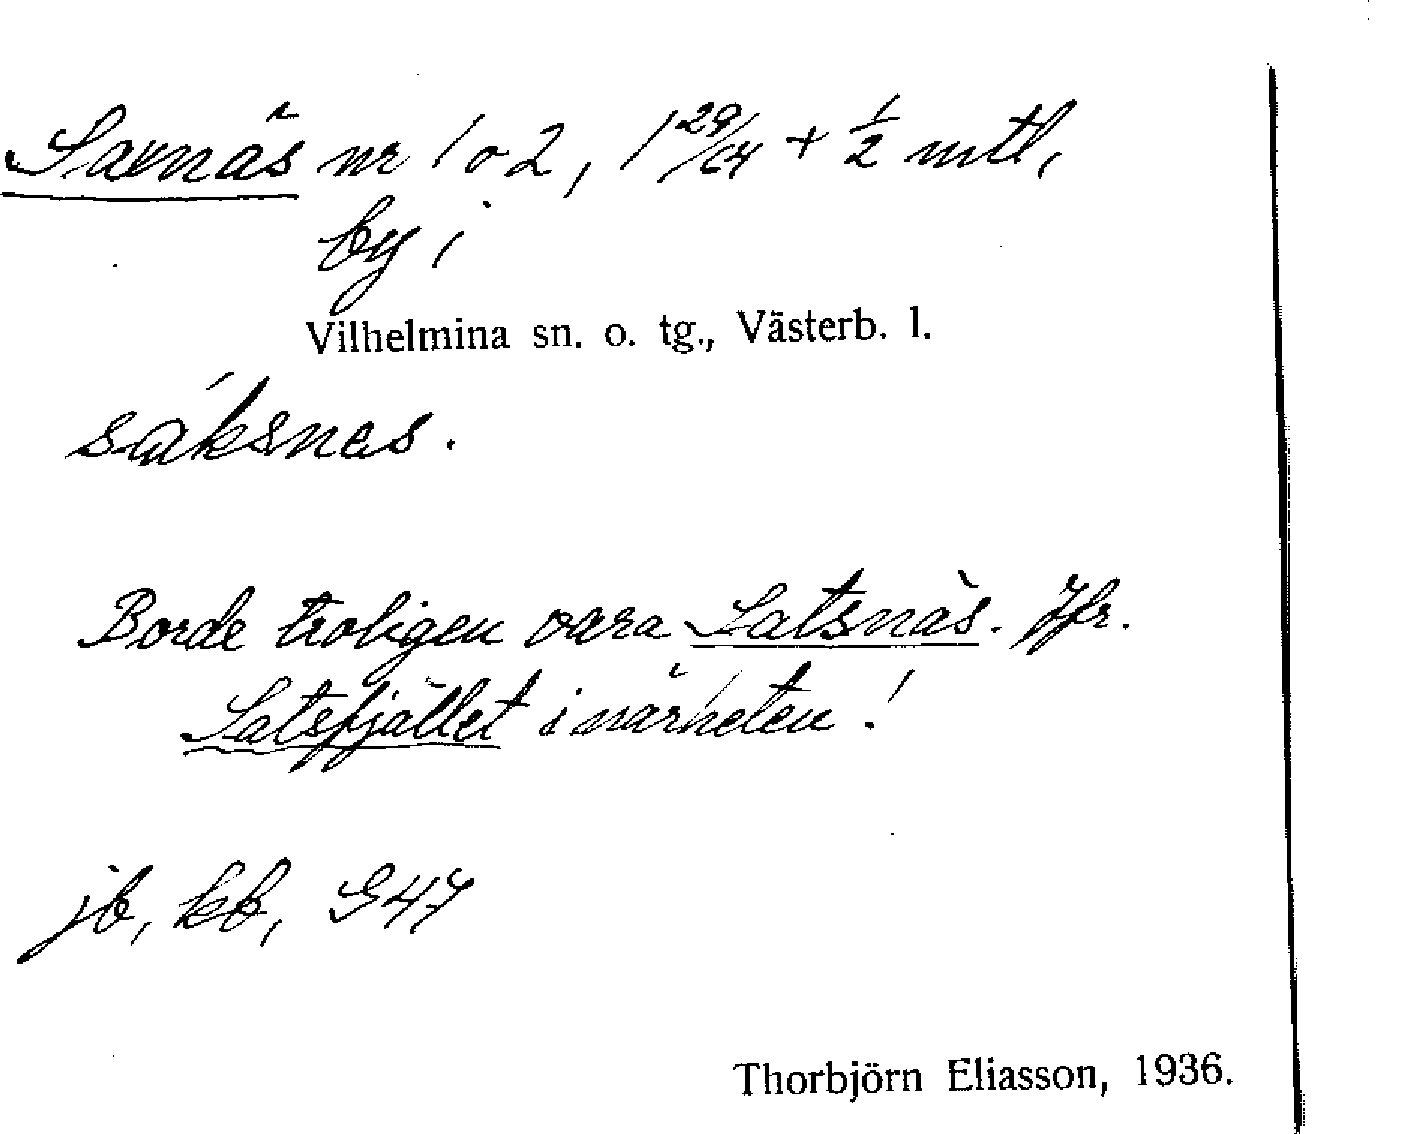 Saxnäs nr 1 o 2, 1 29/64 + 1/2 mtl,
by i
Vilhelmina sn. o. tg., Västerb. l.
sáksnes.
Borde troligen vara Satsnäs. Jfr.
Satsfjället i närheten!
jb, kb, G47
Thorbjörn Eliasson, 1936.